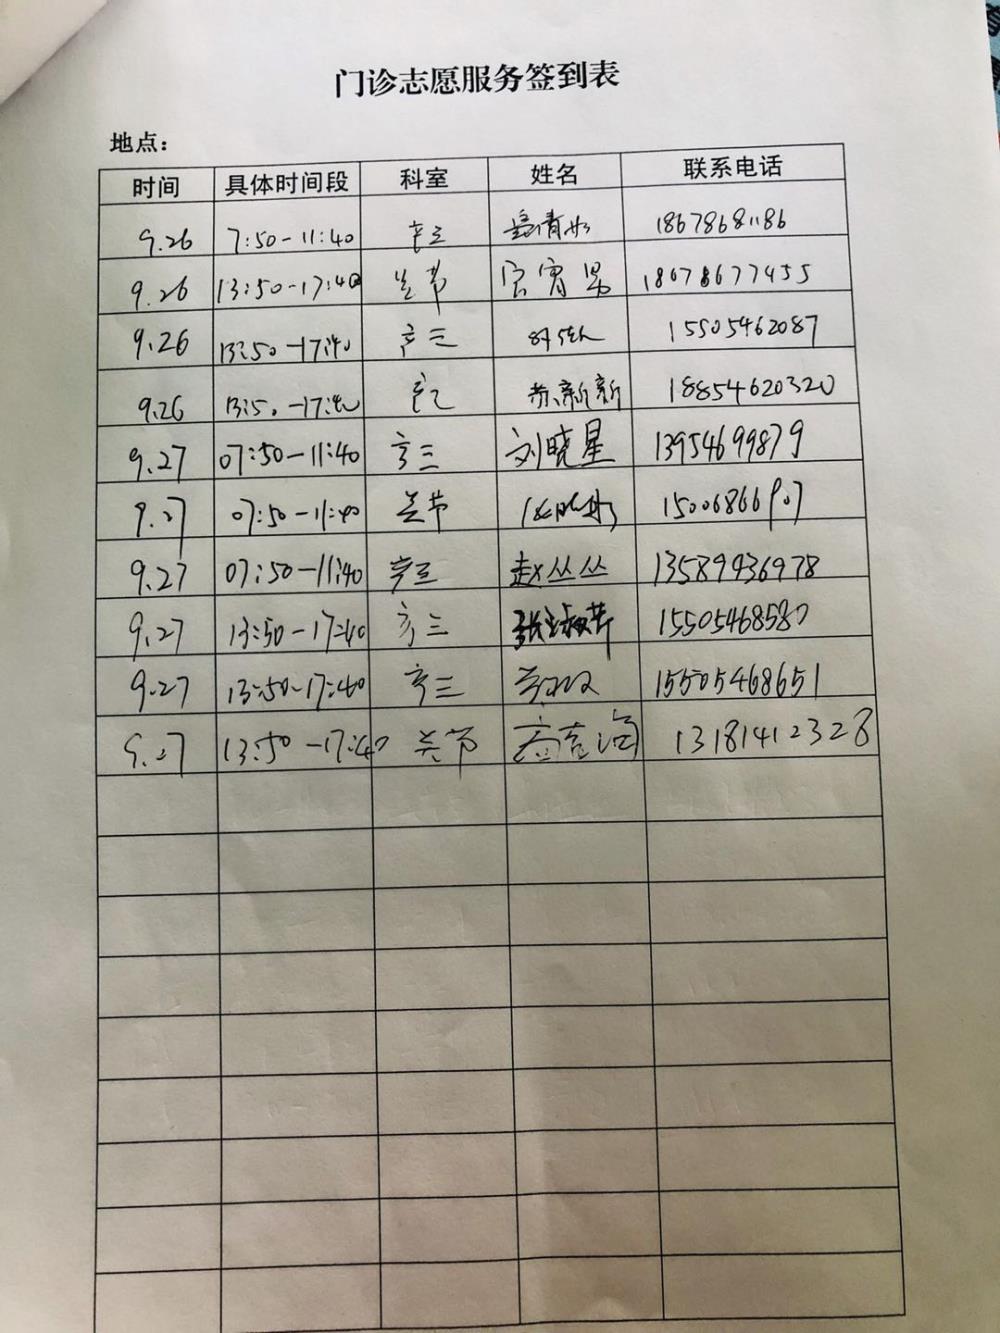 门诊志愿服务签到表
地点：
时间 具体时间段 科室 姓名 联系电话
9.26 7:50-11:40 18678681186
9.26 13:50-17:40 关节 18678677455
9.26 13:50-17:40 三 15505462087
9.26 13:50-17:40 苏新新 18854620320
9.27 07:50-11:40 三 刘晓星 13954699879
9.27 07:50-11:40 关节 15006866907
9.27 07:50-11:40 赵丛丛 13589936978
9.27 13:50-17:40 三 张 15505468580
9.27 13:50-17:40 三 15505468651
9.27 13:50-17:40 关节 13181412328